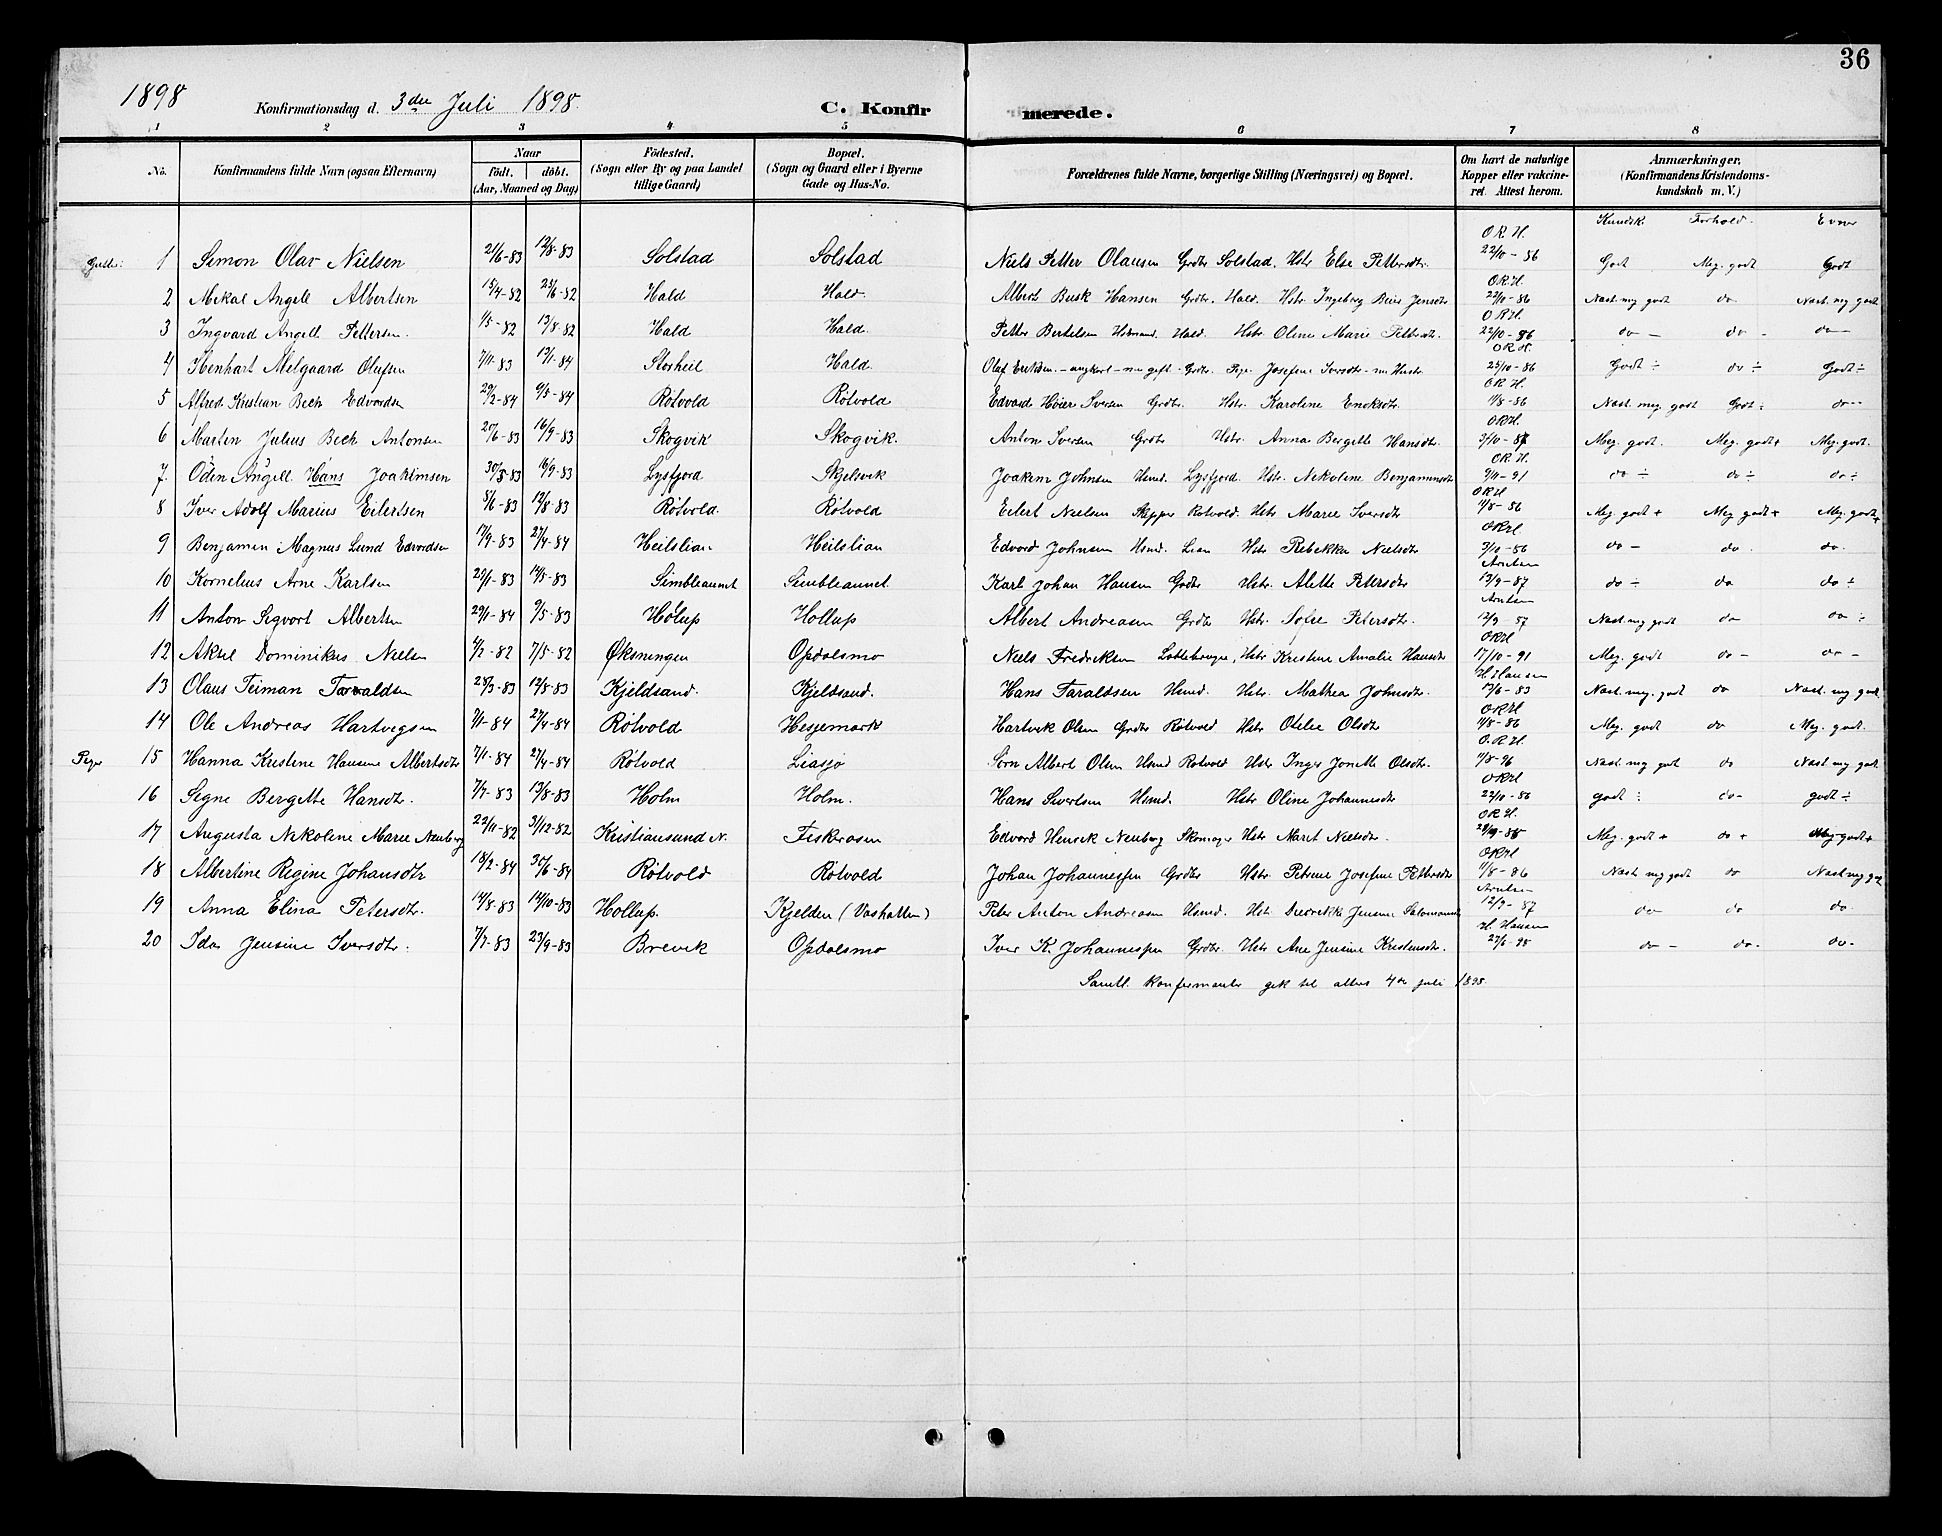 36
1898 Konfirmationsdag d. 3die Juli 1898. C. Konfirmerede.
1 2 3 4 5 6 7 8
No. Konfirmandens fulde Navn (ogsaa Efternavn) Naar født. døbt. (Aar, Maaned og Dag) Fødested. (Sogn eller By og paa Landet tillige Gaard) Bopæl. (Sogn og Gaard eller i Byerne Gade og Hus-No. Forældrenes fulde Navne, borgerlige Stilling (Næringsvei) og Bopæl. Om havt de naturlige Kopper eller vakcineret. Attest herom. Anmærkninger. (Konfirmandens Kristendomskundskab m. V.)
Kundsk. Forhold. Evner
Gutter: 1 Simon Olav Nielsen 21/6-83 12/8-83 Solstad Solstad Niels Petter Olausen Grdbr Solstad. Hstr Else Pettersdtr. O R H. 22/10-86 Godt Meg. godt Godt
2 Mikal Angell Albertsen 15/4-82 25/6-82 Hald Hald. Albert Busk Hansen Grdbr. Hald. Hstr Ingeborg Jensdtr O R H. 22/10-86 Nast. meg godt do Nast. meg godt
3 Ingvard Angell Pettersen. 1/5-82 13/8-82 Hald Hald. Petter Bertelsen Husmand. Hald. Hstr Oline Marie Pettersdtr. O R H. 22/10-86 do - do - do -
4 Henhart Melgaard Olufsen 7/11-83 13/1-84 Storheil Hald. Olaf Eriksen - ungkarl - nu gift - Grdbr. Pige Josefine Iversdtr - nu Hustr. O R H. 25/10-86 Godt ÷ do ÷ Godt ÷
5 Alfred Kristian Bech Edvardsen 29/2-84 9/5-84 Røtvold Røtvold Edvard Høier Iversen Grdbr. Hstr. Karoline Eriksdtr. O R H. 11/8-86 Nast. meg. godt Godt: do -
6 Martin Julius Bech Antonsen 25/6-83 16/9-83 Skogvik Skogvik. Anton Iversen Grdbr Hstr. Anna Bergette Hansdtr. O R H. 3/10-87 Meg. godt. Meg. godt + Meg. godt.
7. Oden Angell Hans Joakimsen 30/8-83 16/9-83 Lysfjord Skjelsvik Joakim Johnsen Hsmd. Lysfjord. Hstr. Nekolene Benjaminsdtr O R. H. 9/11-91 do ÷ do ÷ do ÷
8 Iver Adolf Marius Eilertsen 8/6-83 12/8-83 Røtvold. Røtvold Eilert Nielsen Skipper Røtvold. Hstr Marie Iversdtr O R H 11/8-86 Meg. godt + Meg godt + Meg. godt +
9 Benjamin Magnus Lund Edvardsen 17/9-83 27/4-84 Heilslian Heilslian Edvard Johnsen Hsmd. Lian Hstr Rebekka Nielsdtr O R H. 3/10-86 do - do. do.
10 Kornelius Arne Karlsen 22/1-83 14/5-83 Simbleaunet Simbleaunet Karl Johan Hansen Grdbr Hstr. Alette Petersdtr Arntsen 13/9-87 do ÷ do do ÷
11 Anton Sigvart Albertsen 29/1-84 9/5-83 Hollup Hollup Albert Andreasen Grdbr Hstr. Sofie Petersdtr. Arntsen 12/9 87 Nast. meg godt do do ÷
12 Aksel Dominikus Nielsen 4/2-82 7/5-82 Øksningen Opdalsmo Niels Fredriksen Hstr Kristine Amalie Hansdtr O R H 17/10-91 Meg. godt do - do -
13 Olaus Teiman Taraldsen 28/3-83 12/8-83 Kjeldsand. Kjeldsand. Hans Taraldsen Hsmd. Hstr. Mathea Johnsdtr. H. Hansen 17/6-83 Nast. meg. godt do Nast. meg godt
14 Ole Andreas Hartvigsen 7/1-84 27/4-84 Røtvold Hesjemark Hartvik Olsen Grdbr Røtvold Hstr Otelie Olsdtr O R H 11/8-86 Meg. godt do Meg. godt.
Piger 15 Hanna Kristine Hansine Albertsdtr 7/11-84 27/4-84 Røtvold Liasjø Sørn Albert Olsen Hsmd Røtvold Hstr Inger Jonette Olsdtr. O. R H. 11/8-96 Nast meg godt do Nast. meg godt
16 Signe Bergette Hansdtr. 7/7-83 13/8-83 Holm Holm. Hans Sivertsen Hsmd. Hstr Oline Johannesdtr O R H 22/10-86 godt ÷ do - godt ÷
17 Augusta Nikoline Marie Neuberg 22/11-82 31/12-82 Kristiansund N. Fiskerosen Edvard Henrik Neuberg Skomager Hstr Marit Nielsdtr. O R H. Meg. godt + do + Meg godt +
18 Albertine Regine Johansdtr 18/2-84 30/6-84 Røtvold Røtvold Johan Johannessen Grdbr Hstr Petrine Josefine Pettersdtr O R H 11/8-86 Nast meg godt do Nast. meg godt
19 Anna Elina Petersdtr. 14/8-83 14/10-83 Hollup. Kjelden (Vashatten) Peter Anton Andreasen Hsmd. Hstr Jensine Salomonsdtr Arntsen 12/9-87 do do do.
20 Ida Jensine Iversdtr. 7/7-83 23/9-83 Brevik Opdalsmo Iver K. Johannessen Grdbr. Hstr Ane Jensine Kristensdtr. H. Hansen 27/6-98 do - do - do -
Samtl. konfirmanter gik til alters 4de juli 1898.